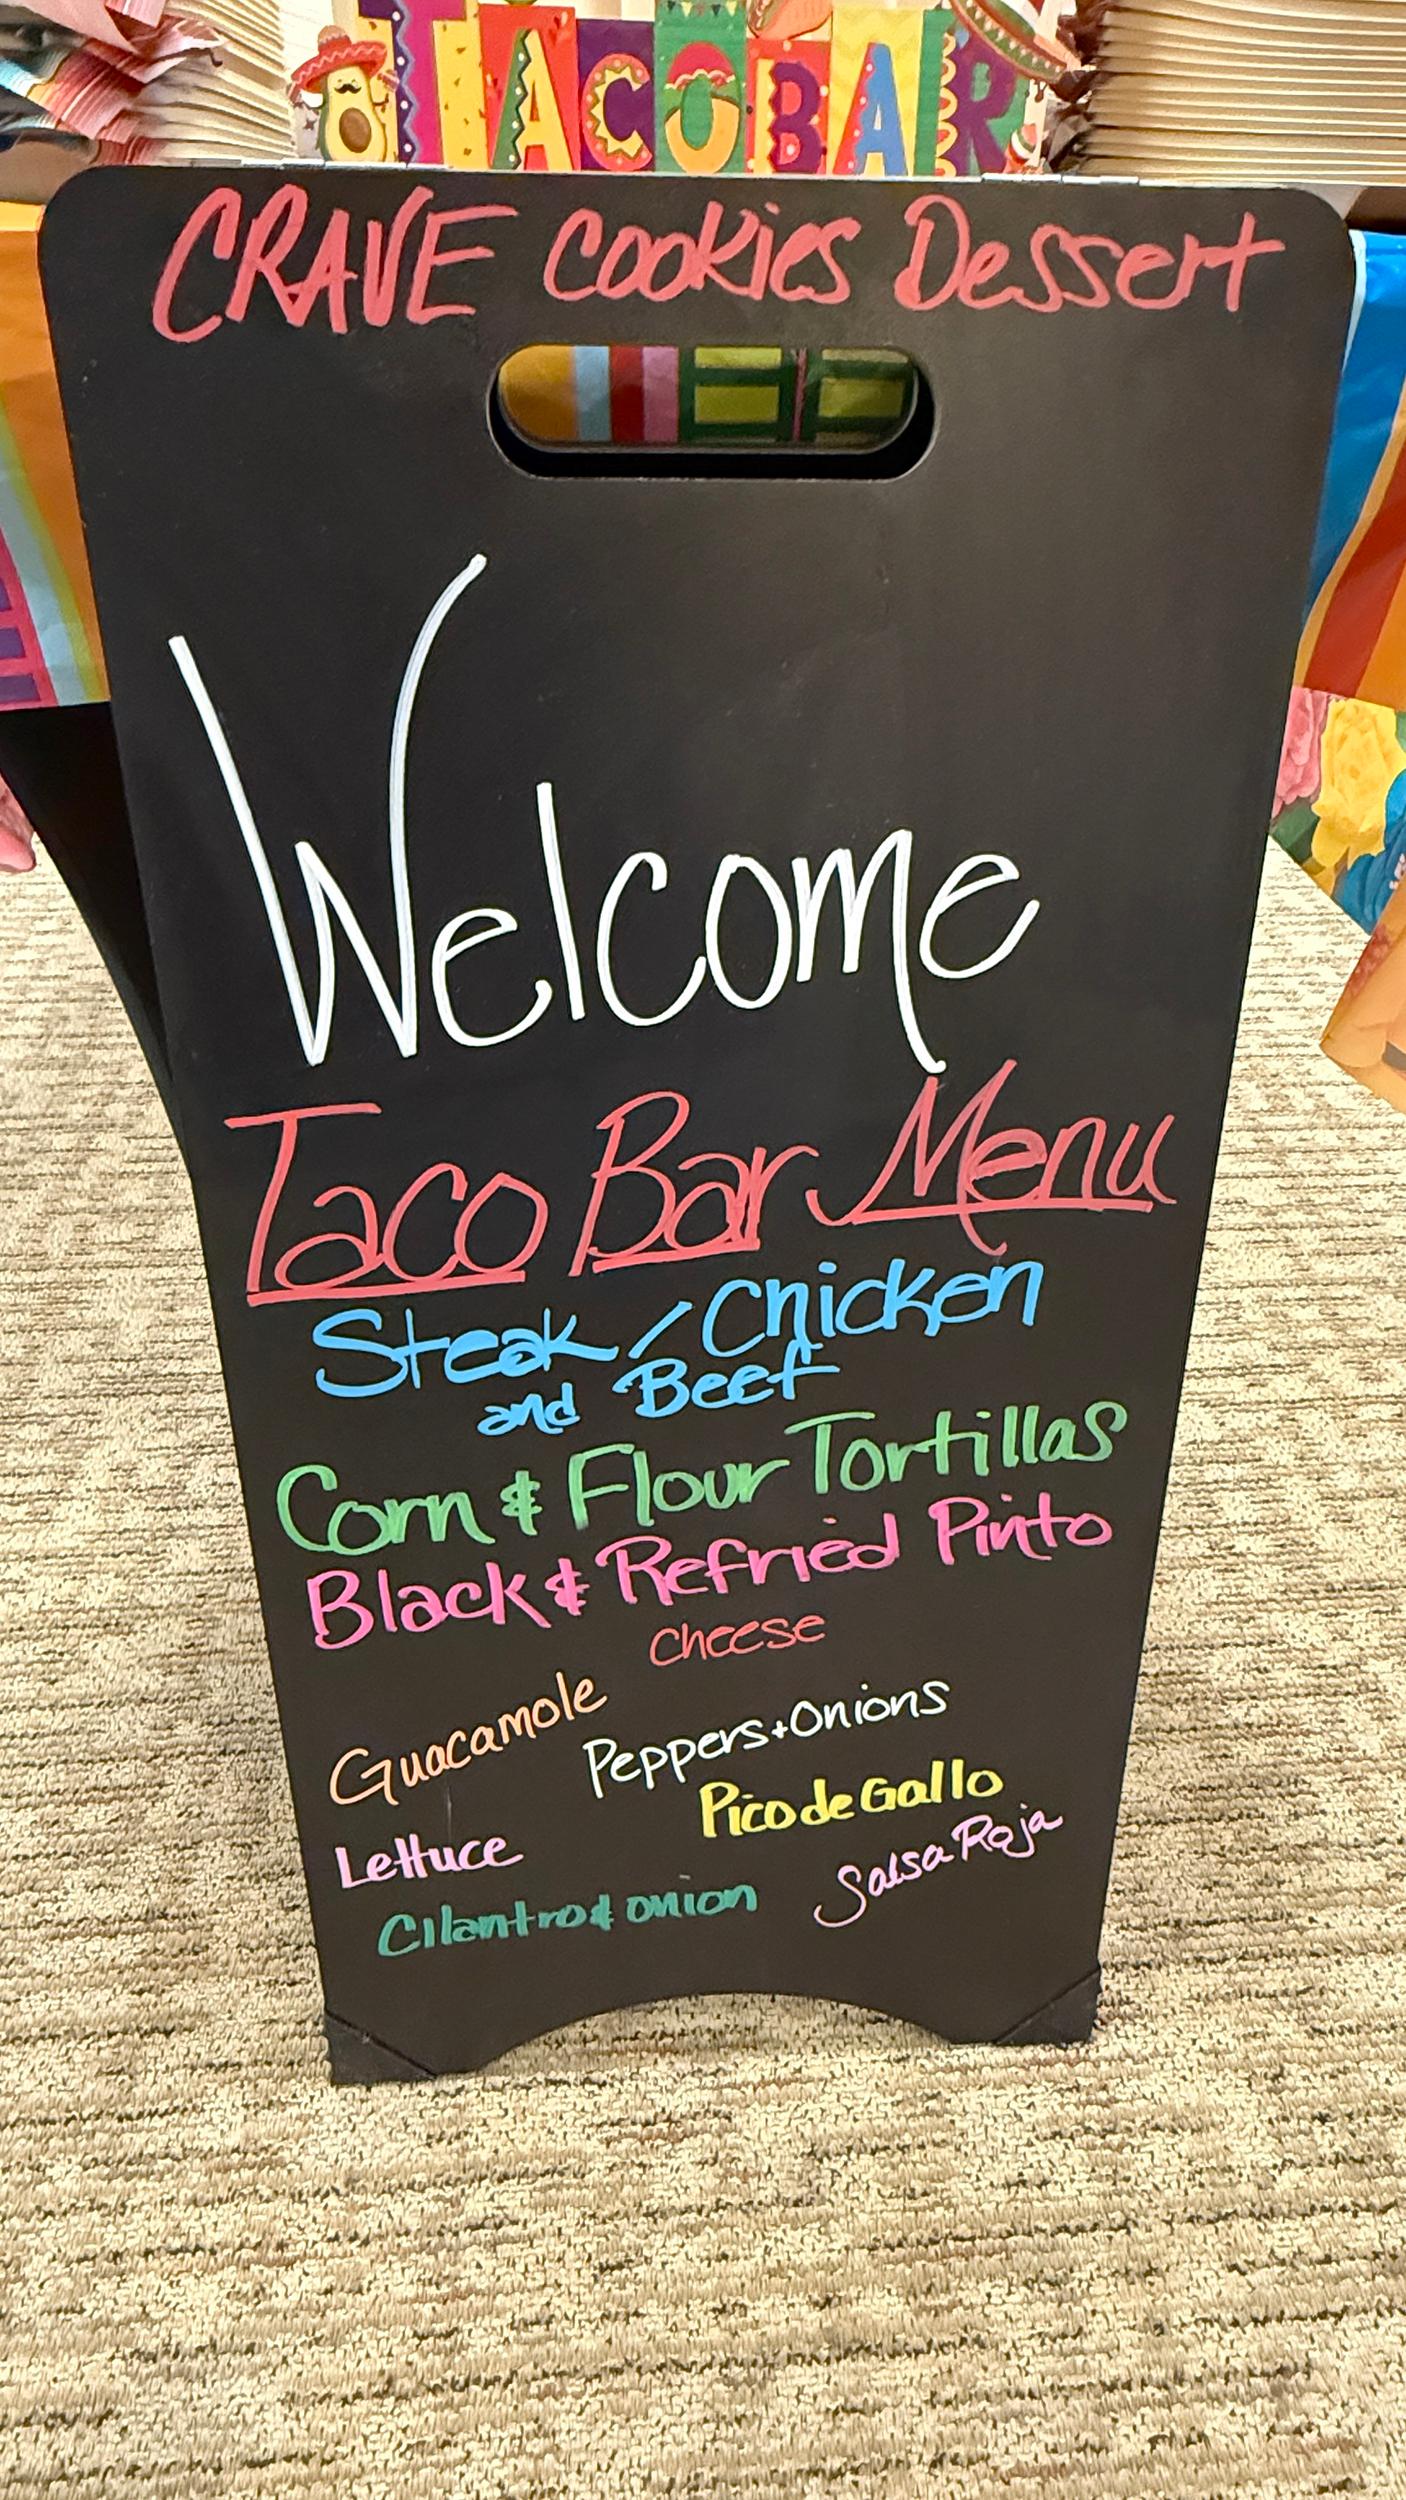 TACOBAR
CRAVE Cookies Dessert
Welcome
Taco Bar Menu
Steak / Chicken
and Beef
Corn & Flour Tortillas
Black & Refried Pinto
cheese
Guacamole
Peppers + Onions
Pico de Gallo
Lettuce
Salsa Roja
Cilantro & onion